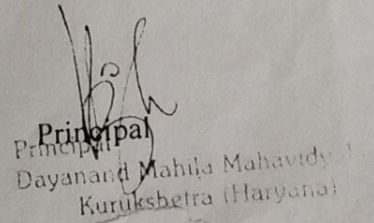 Principal
Principal
Dayanand Mahila Mahavidy
Kurukshetra (Haryana)